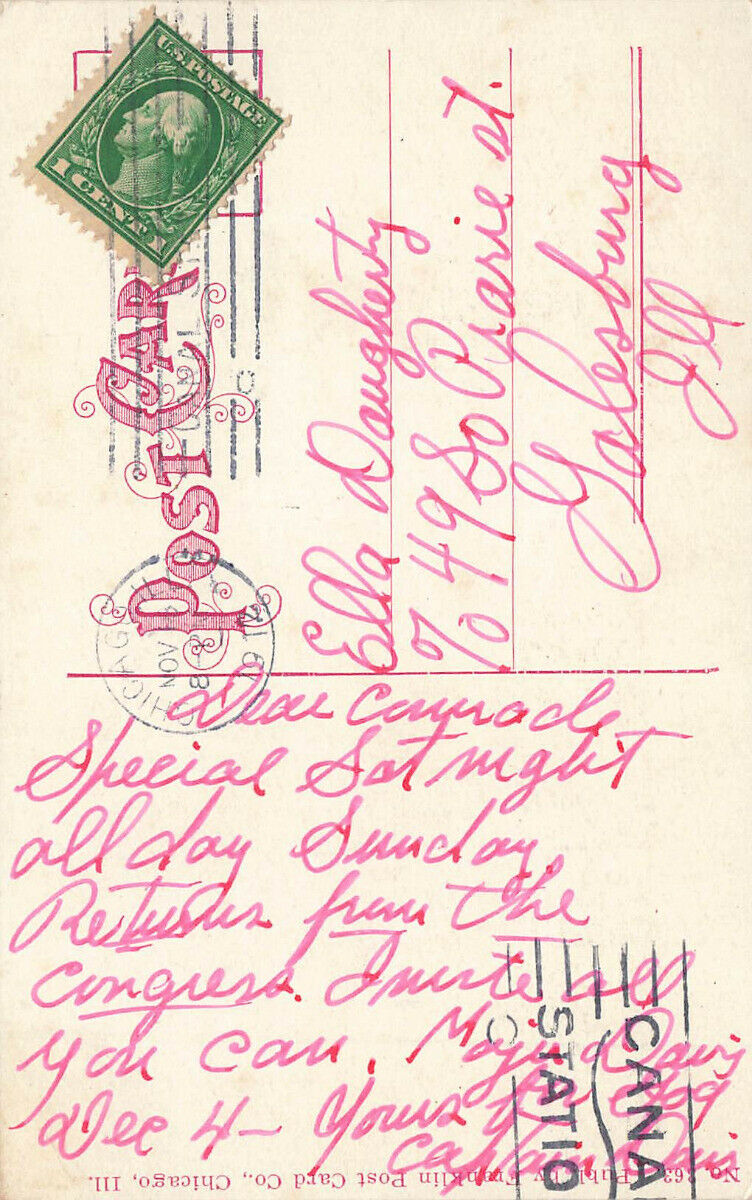 U.S. POSTAGE
1 CENT
POST CARD
CHICAGO
NOV
8
1912
Ella Daugherty
% 49 So Prarie st.
Galesburg
Ill
Dear Comrade
Special Sat night
all day Sunday
Returns from the
Congress. Invite all
you can. Major Davis
Dec 4 — Yours
Captain Davis
CANA
STATIO
No. 263 Publ. by Franklin Post Card Co., Chicago, Ill.